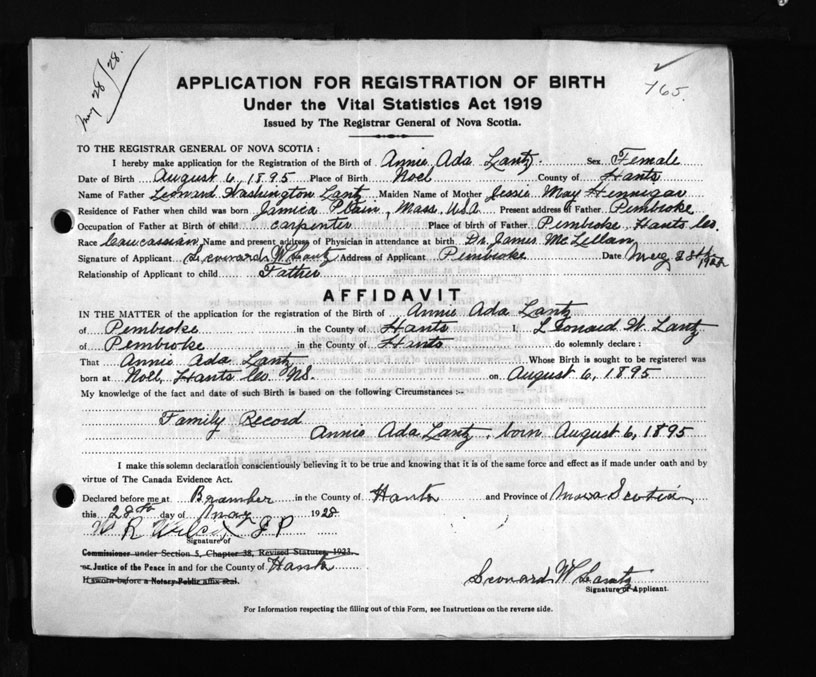 May 28/28.
765.
APPLICATION FOR REGISTRATION OF BIRTH
Under the Vital Statistics Act 1919
Issued by The Registrar General of Nova Scotia.
TO THE REGISTRAR GENERAL OF NOVA SCOTIA :
I hereby make application for the Registration of the Birth of Annie Ada Lantz. Sex Female
Date of Birth August 6, 1895 Place of Birth Noel County of Hants
Name of Father Leonard Washington Lantz Maiden Name of Mother Jessie May Hennigar
Residence of Father when child was born Jamica Plain, Mass, USA Present address of Father Pembroke
Occupation of Father at Birth of child carpenter Place of birth of Father Pembroke, Hants Co.
Race Caucassian Name and present address of Physician in attendance at birth Dr. James McLellan
Signature of Applicant Leonard W Lantz Address of Applicant Pembroke Date May 28th
Relationship of Applicant to child Father
AFFIDAVIT
IN THE MATTER of the application for the registration of the Birth of Annie Ada Lantz
of Pembroke in the County of Hants I, Leonard W. Lantz
of Pembroke in the County of Hants do solemnly declare :
That Annie Ada Lantz Whose Birth is sought to be registered was
born at Noel, Hants Co. NS. on August 6, 1895
My knowledge of the fact and date of such Birth is based on the following Circumstances :-
Family Record
Annie Ada Lantz, born August 6, 1895
I make this solemn declaration conscientiously believing it to be true and knowing that it is of the same force and effect as if made under oath and by
virtue of The Canada Evidence Act.
Declared before me at Bramber in the County of Hants and Province of Nova Scotia
this 28th day of May 1928
W R Wilcox J P
Signature of
Commissioner under Section 5, Chapter 38, Revised Statutes, 1923.
or Justice of the Peace in and for the County of Hants
If sworn before a Notary Public affix seal.
Leonard W Lantz
Signature of Applicant.
For Information respecting the filling out of this Form, see Instructions on the reverse side.